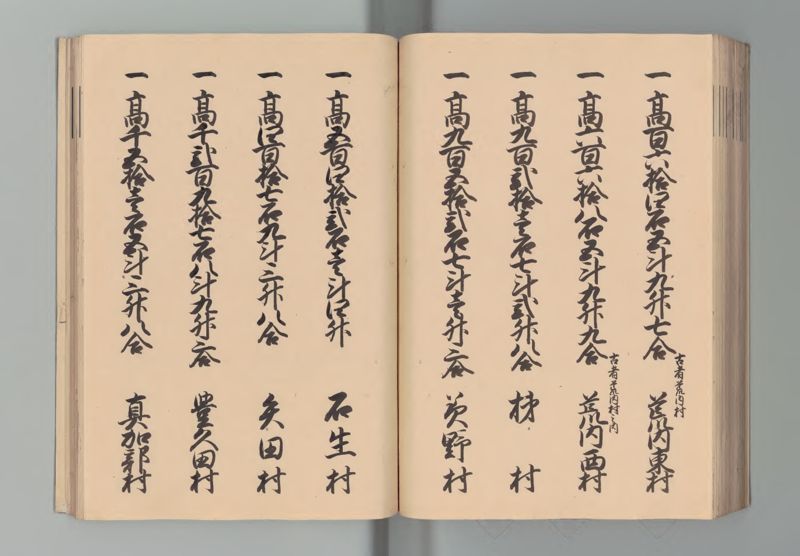 一 高百六拾四石五斗九升七合 古者荒内村 荒内東村
一 高六百六拾八石五斗九升九合 古者荒内村之内 荒内西村
一 高九百弐拾壱石七斗弐升八合 村
一 高九百五拾弐石七斗壱升三合 美野村
一 高五百四拾弐石壱斗四升 石生村
一 高四百拾七石九斗三升八合 矢田村
一 高千弐百九拾七石八斗九升三合 豊久田村
一 高千五拾壱石五斗三升八合 真加部村